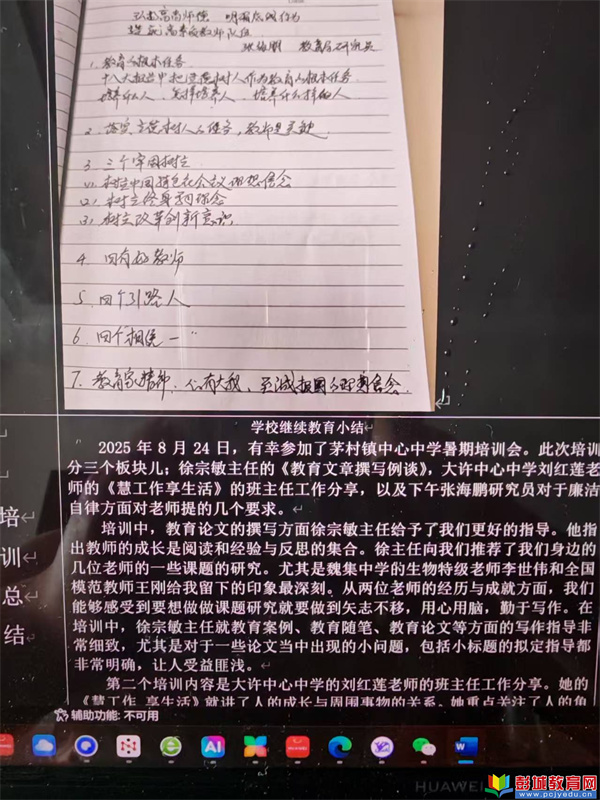 弘扬高尚师德 明确底线行为
提升高素质教师队伍
张海鹏 教育局研究员
1、教育的根本任务
十八大报告中把立德树人作为教育的根本任务
培养什么人、怎样培养人、培养什么样的人
2、落实立德树人的任务，教师是关键
3、三个牢固树立
(1)、树立中国特色社会主义理想信念
(2)、树立终身学习理念
(3)、树立改革创新意识
4、四有好教师
5、四个引路人
6、四个相统一
7、教育家精神：心有大我、至诚报国的理想信念
学校继续教育小结
2025 年 8 月 24 日，有幸参加了茅村镇中心中学暑期培训会。此次培训
分三个板块儿；徐宗敏主任的《教育文章撰写例谈》，大许中心中学刘红莲老
师的《慧工作享生活》的班主任工作分享，以及下午张海鹏研究员对于廉洁
自律方面对老师提的几个要求。
培训中，教育论文的撰写方面徐宗敏主任给予了我们更好的指导。他指
出教师的成长是阅读和经验与反思的集合。徐主任向我们推荐了我们身边的
几位老师的一些课题的研究。尤其是魏集中学的生物特级老师李世伟和全国
模范教师王刚给我留下的印象最深刻。从两位老师的经历与成就方面，我们
能够感受到要想做做课题研究就要做到矢志不移，用心用脑，勤于写作。在
培训中，徐宗敏主任就教育案例、教育随笔、教育论文等方面的写作指导非
常细致，尤其是对于一些论文当中出现的小问题，包括小标题的拟定指导都
非常明确，让人受益匪浅。
第二个培训内容是大许中心中学的刘红莲老师的班主任工作分享。她的
《慧工作 享生活》就讲了人的成长与周围事物的关系。她重点关注了人的角
培
训
总
结
辅助功能: 不可用
AI
W
HUAWEI
彭城教育网
www.pcjyedu.cn